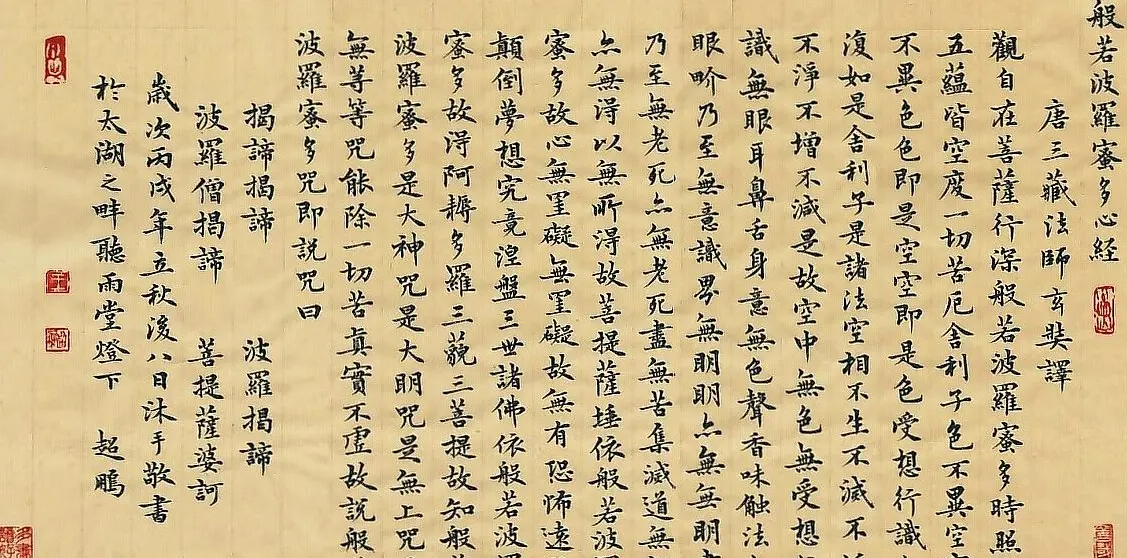 般若波羅蜜多心経
唐三藏法師玄奘譯
觀自在菩薩行深般若波羅蜜多時照
五蘊皆空度一切苦厄舍利子色不異空
不異色色即是空空即是色受想行識
復如是舍利子是諸法空相不生不滅不
不淨不增不減是故空中無色無受想
識無眼耳鼻舌身意無色聲香味触法
眼界乃至無意識界無明明亦無無明
乃至無老死亦無老死盡無苦集滅道無
亦無得以無所得故菩提薩埵依般若波
蜜多故心無罣礙無罣礙故無有恐怖遠
顛倒夢想究竟涅盤三世諸佛依般若波
蜜多故得阿耨多羅三藐三菩提故知般
波羅蜜多是大神咒是大明咒是無上咒
無等等咒能除一切苦真實不虛故説般
波羅蜜多咒即説咒曰
揭諦揭諦 波羅揭諦
波羅僧揭諦 菩提薩婆訶
歲次丙戌年立秋後八日沐手敬書
於太湖之畔聽雨堂燈下 超鵬